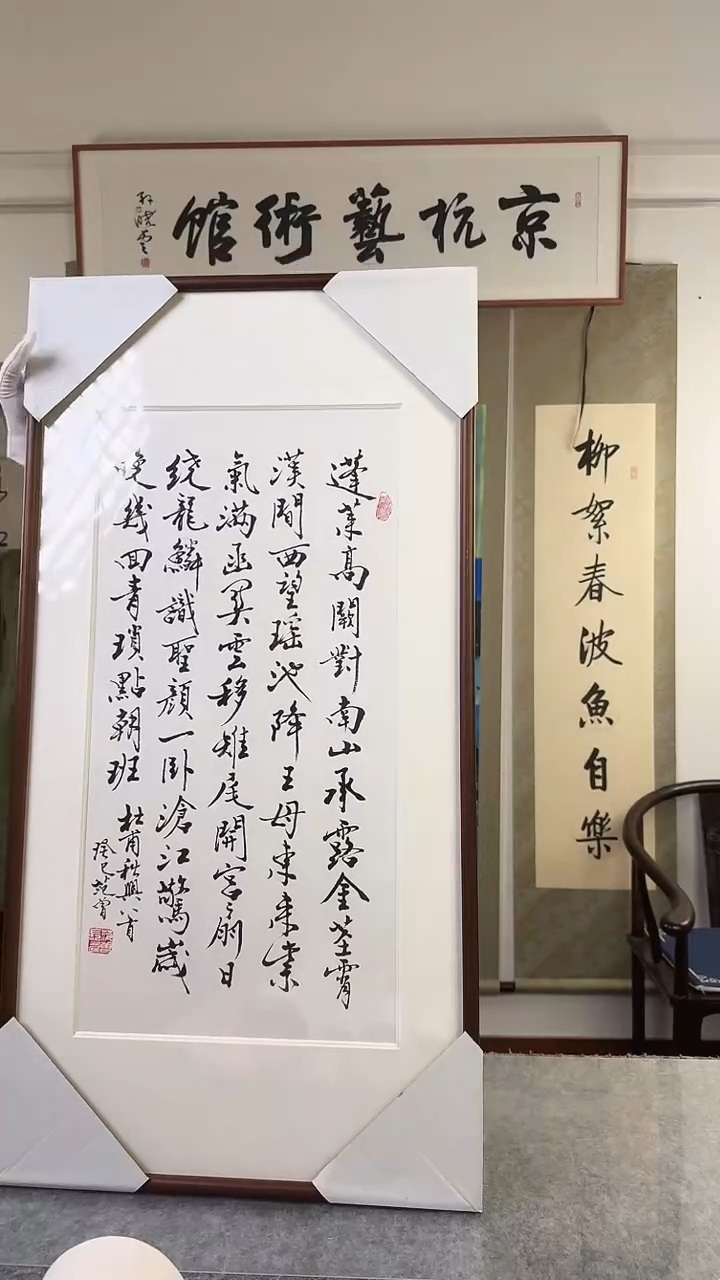 京杭藝術館
孙晓云
蓬萊高闕對南山承露金莖霄
漢間西望瑤池降王母東來紫
氣滿函關雲移雉尾開宮扇日
繞龍鱗識聖顏一卧滄江驚歲
晚幾回青瑣點朝班 杜甫秋興八首
癸巳
柳絮春波魚自樂